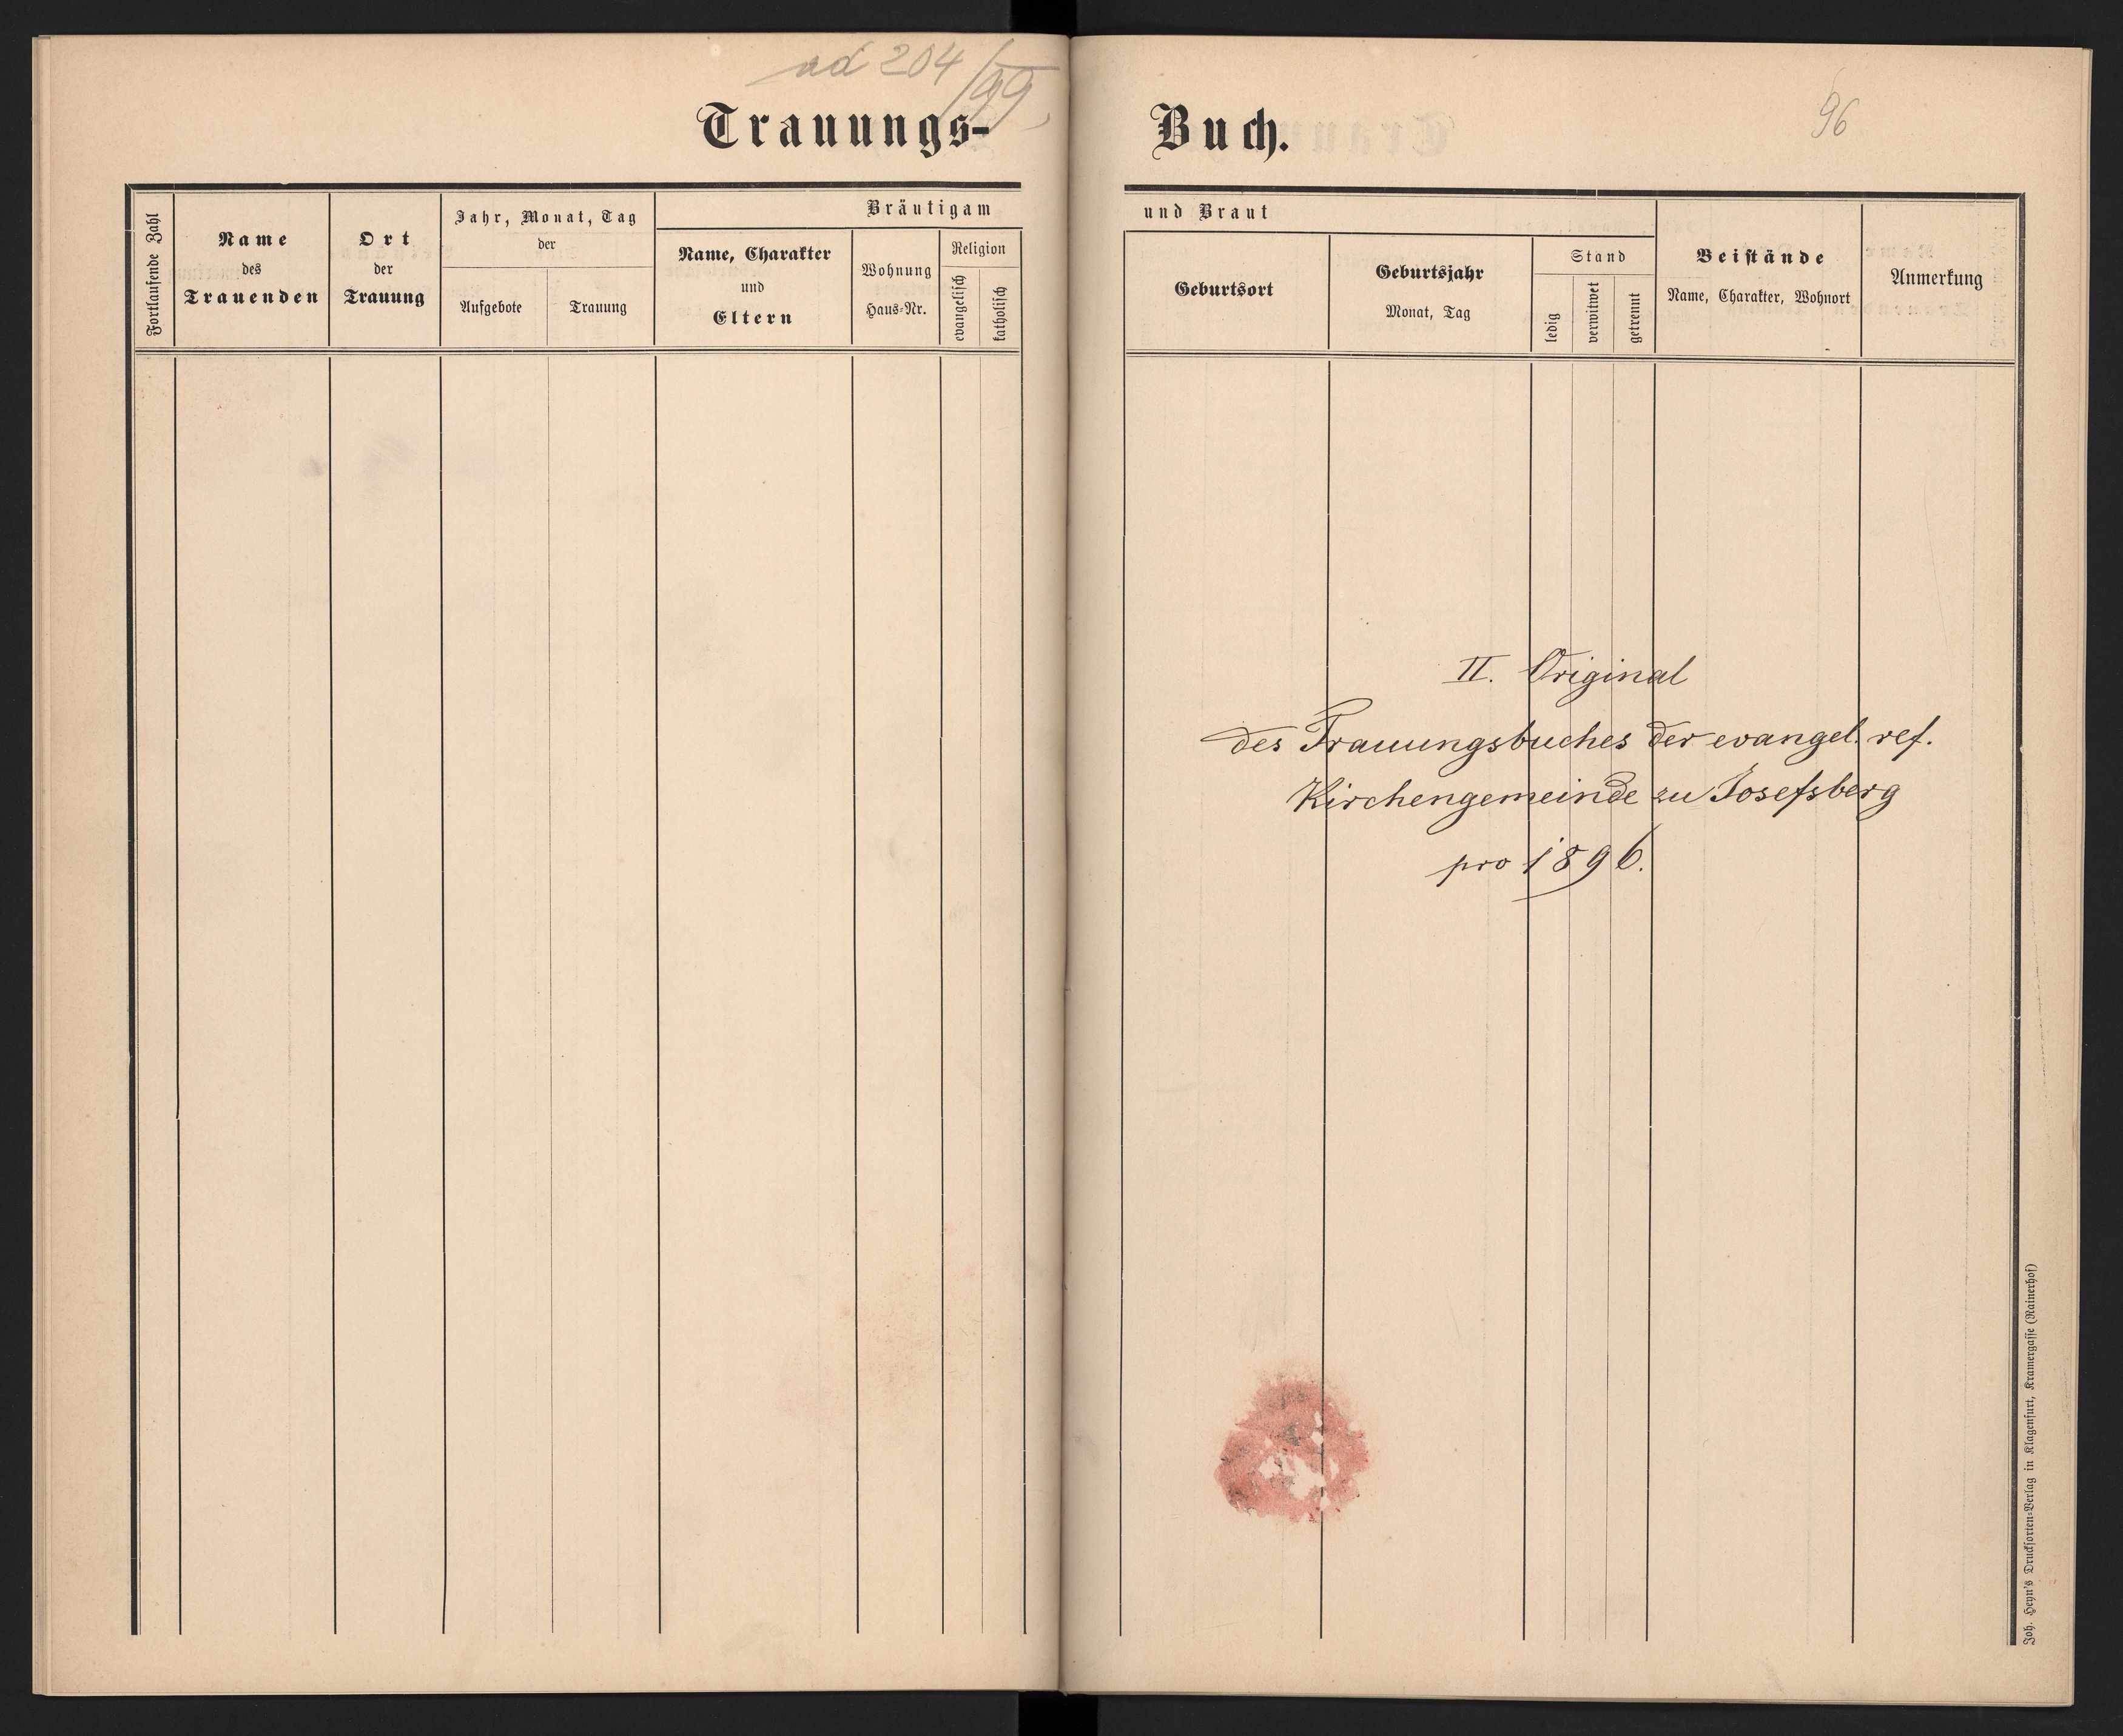 ad 204/99.
96
Trauungs- Buch.
Fortlaufende Zahl
Name
des
Trauenden
Ort
der
Trauung
Jahr, Monat, Tag
der
Aufgebote
Trauung
Bräutigam
Name, Charakter
und
Eltern
Wohnung
Haus-Nr.
Religion
evangelisch
katholisch
und Braut
Geburtsort
Geburtsjahr
Monat, Tag
Stand
ledig
verwitwet
getrennt
Beistände
Name, Charakter, Wohnort
Anmerkung
II. Original
des Trauungsbuches der evangel. ref.
Kirchengemeinde zu Josefsberg
pro 1896.
Joh. Heyn's Drucksorten-Verlag in Klagenfurt, Kramergasse (Rainerhof)